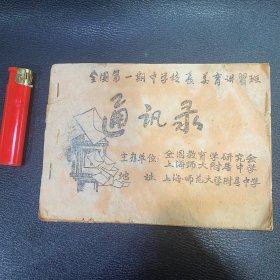 全国第一期中学校长美育讲习班
通讯录
主办单位 全国教育学研究会
上海师大附属中学
地址 上海师范大学附属中学